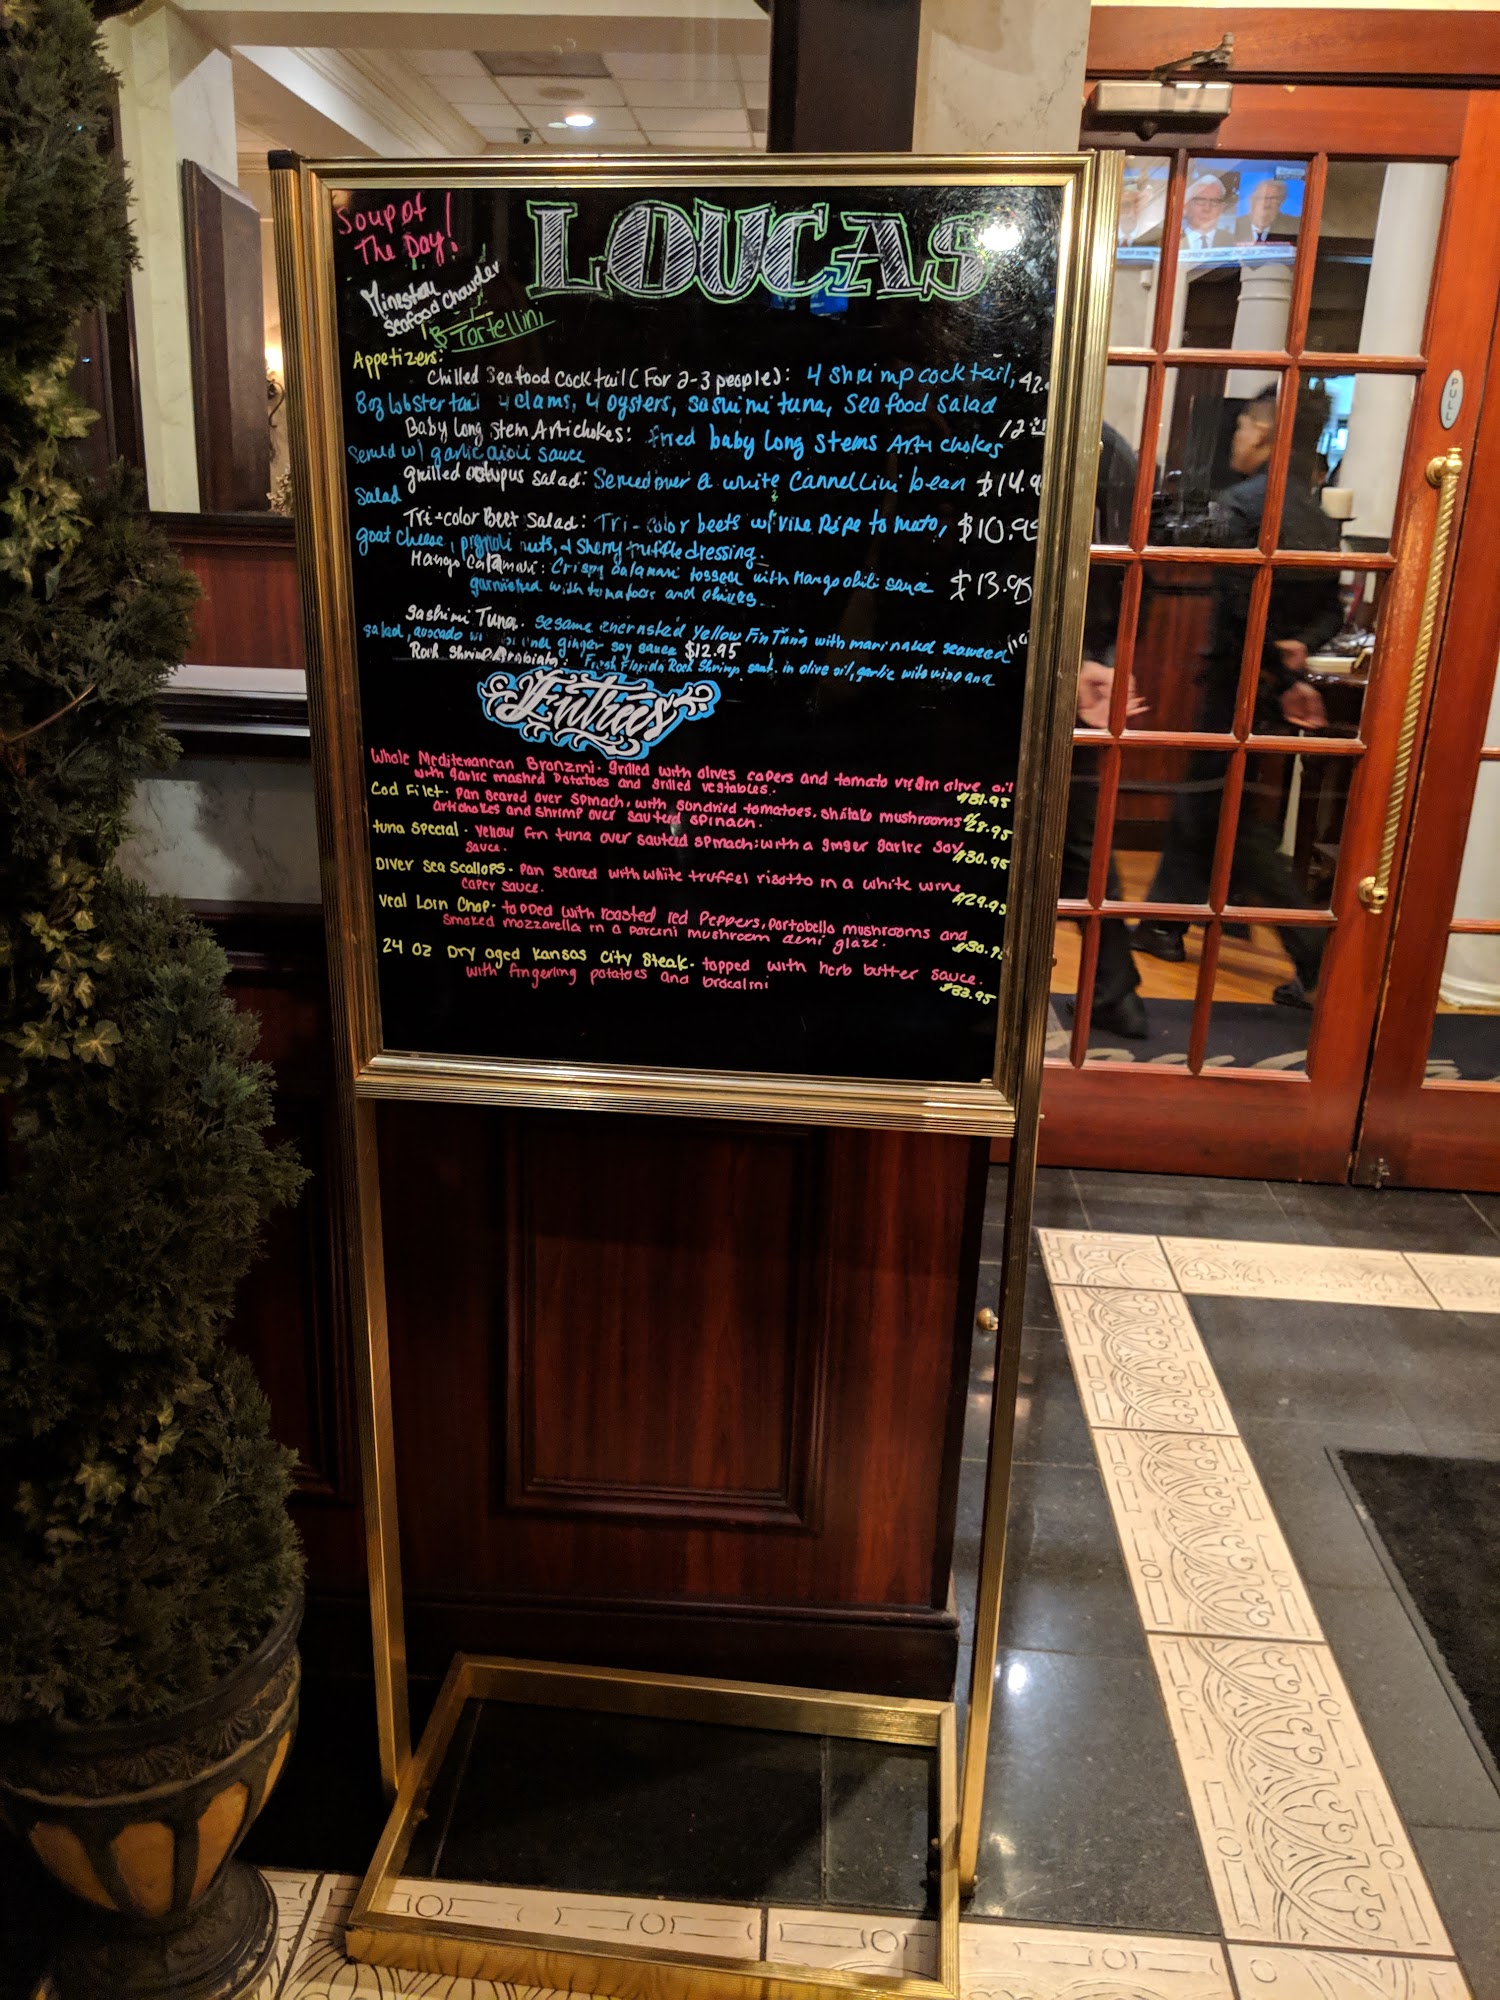 Soup of
The Day!
LOUCAS
Seafood Chowder
Tortellini
Appetizers:
Chilled Seafood Cocktail (For 2-3 people): 4 shrimp cocktail,
8oz lobster tail 4 clams, 4 oysters, sashimi tuna, Seafood Salad
Baby Long Stem Artichokes: fried baby long stems Arti chokes
Served w/ garlic aioli sauce
grilled octupus salad: Served over a white Cannellini bean
Salad
Tri-color Beet Salad: Tri-color beets w/ Vine Ripe tomato, $10.95
goat cheese, pignoli nuts, & Sherry truffle dressing.
Mango Calamari: Crispy Calamari tossed with Mango chili sauce $13.95
garnished with tomatoes and chives
Sashimi Tuna. sesame encrusted Yellow Fin Tuna with marinated seaweed
salad, avocado ginger soy sauce $12.95
Rock Shrimp Arrabiata: Fresh Florida Rock Shrimp saut. in olive oil, garlic white wine and
Entrees
Whole Mediterranean Bronzini. grilled with olives capers and tomato virgin olive oil
with garlic mashed potatoes and grilled vegetables. $31.95
Cod Filet. pan seared over spinach, with sundried tomatoes, shitake mushrooms $28.95
artichokes and shrimp over sauteed spinach.
tuna special. yellow fin tuna over sauteed spinach: with a ginger garlic soy
sauce. $30.95
Diver sea scallops. pan seared with white truffel risotto in a white wine
caper sauce. $29.95
Veal Loin Chop. topped with roasted red peppers, portobello mushrooms and
smoked mozzarella in a porcini mushroom demi glaze.
24 oz Dry aged Kansas City Steak. topped with herb butter sauce.
with fingerling potatoes and brocolini $33.95
PULL